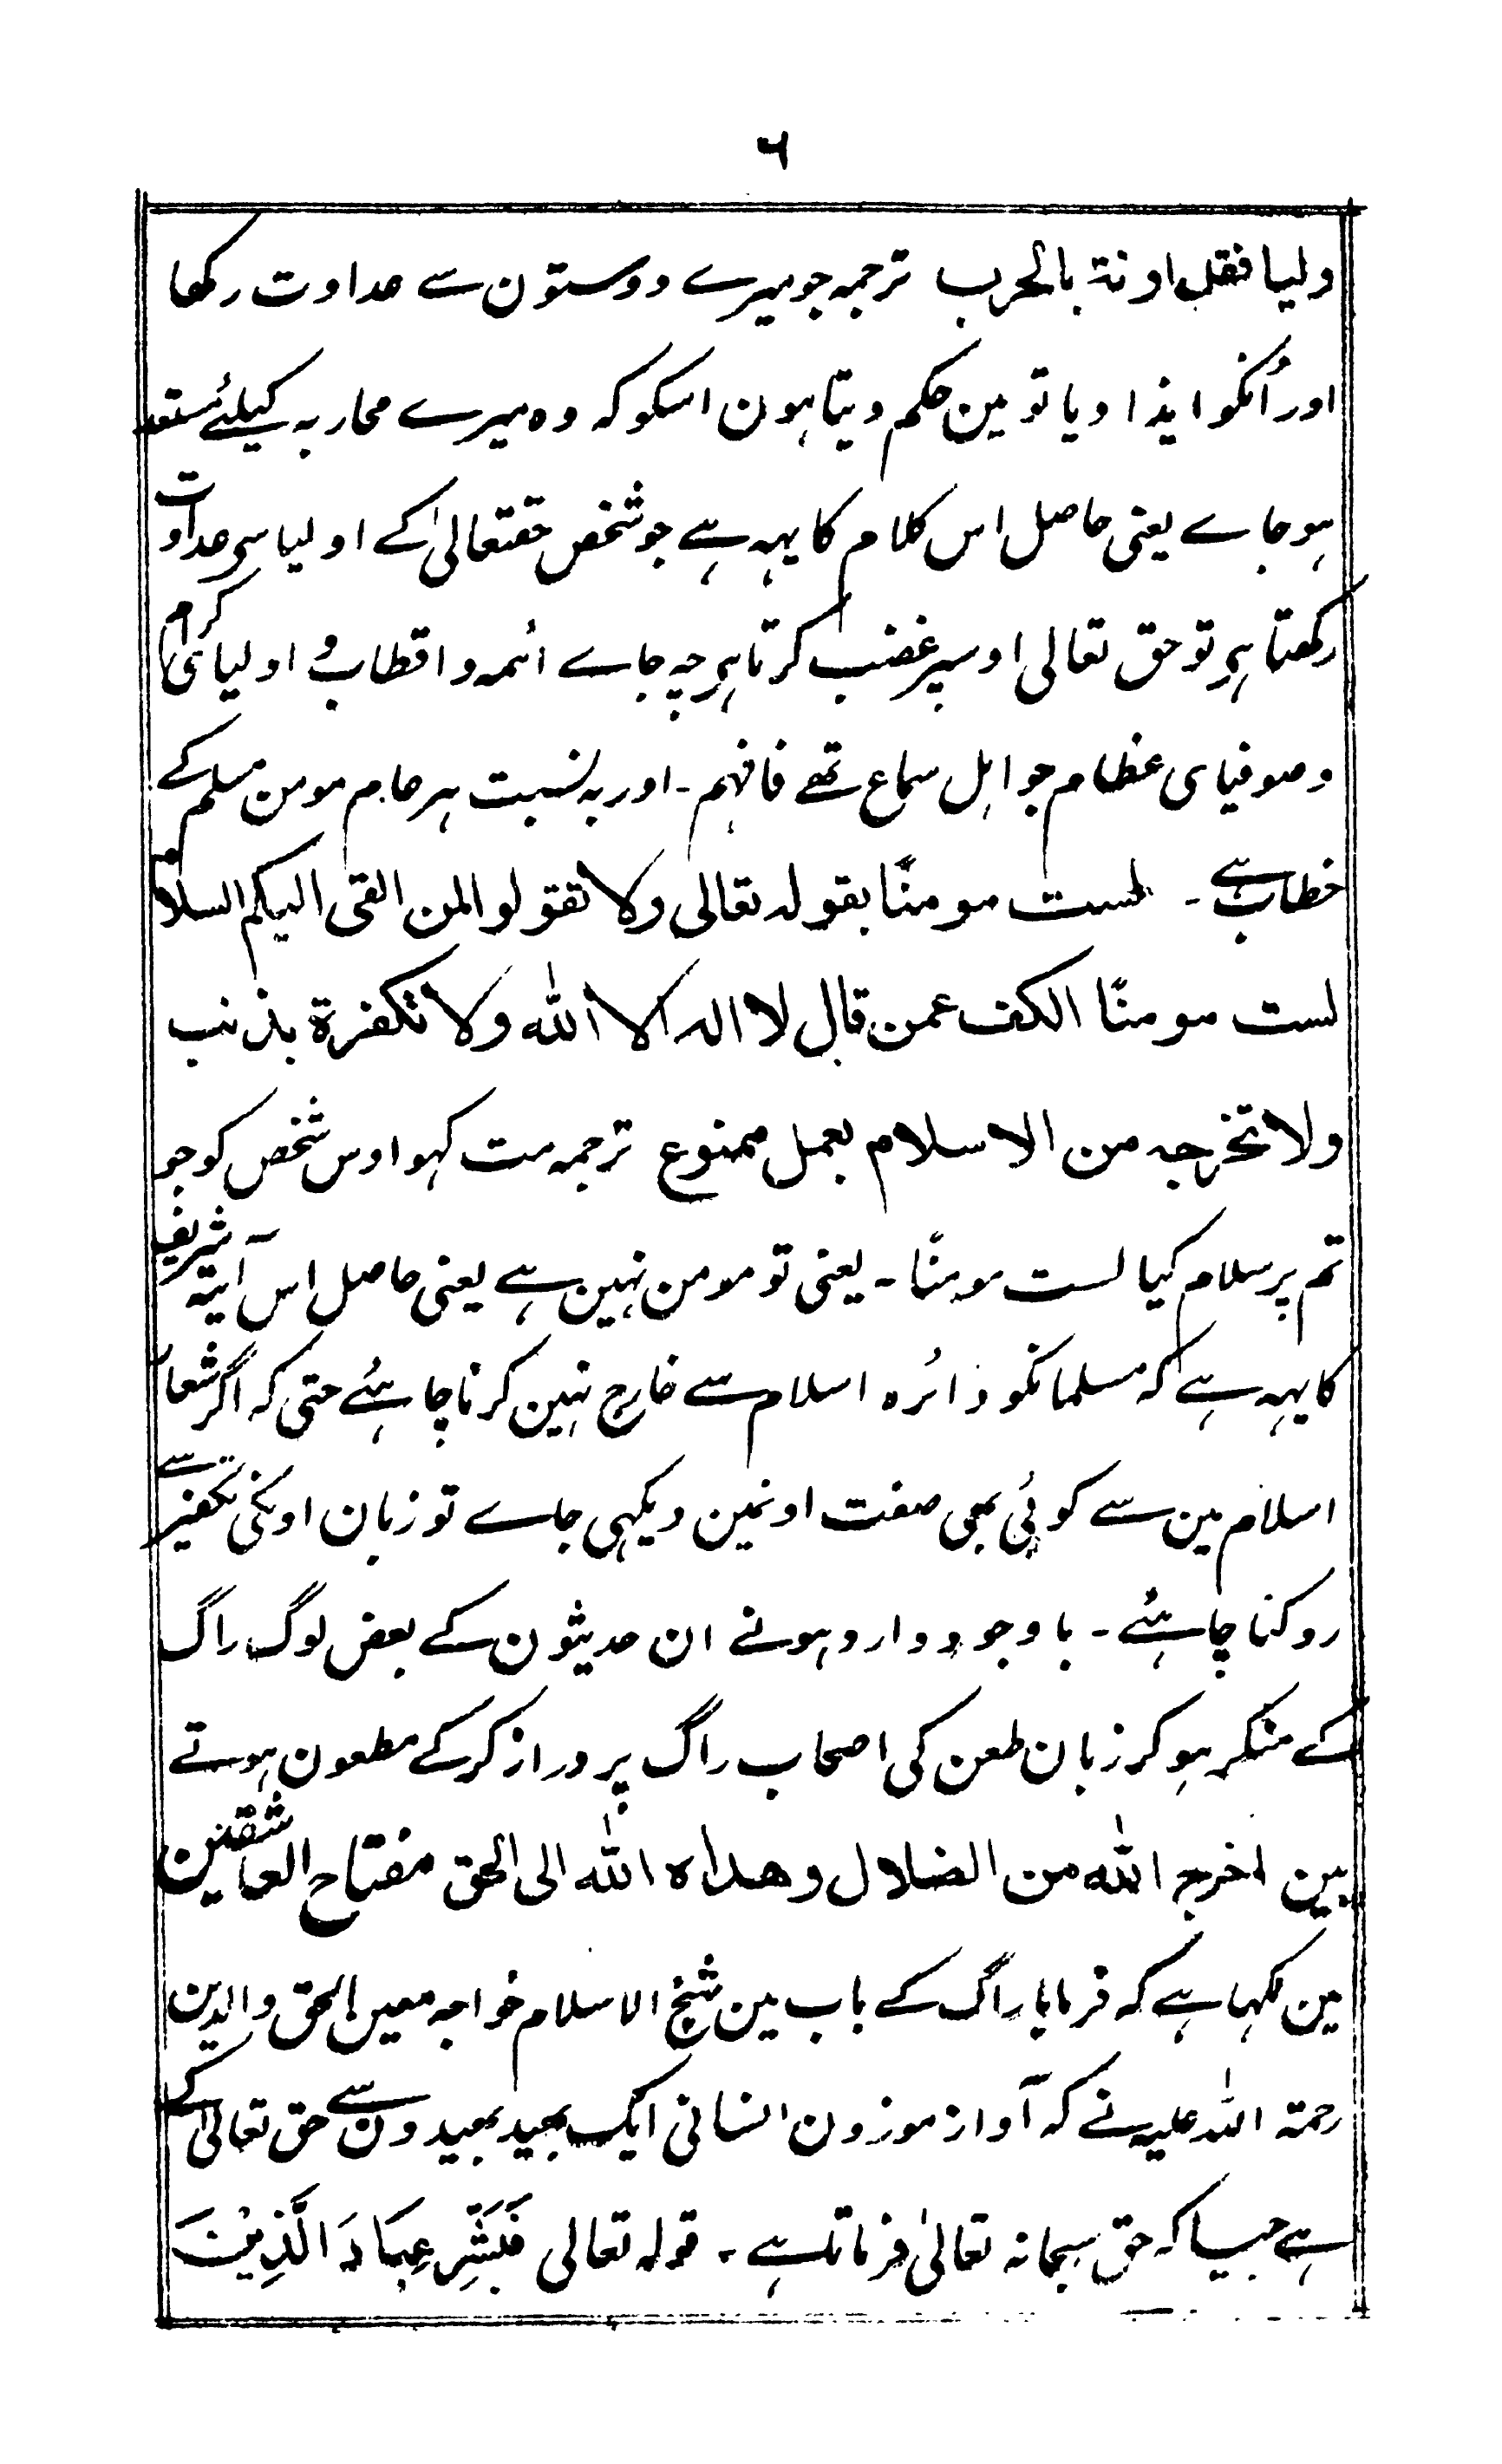 ٦
ولیا فقل اونة بالحرب ترجمہ جو میرے دوستون سے عداوت رکھا
اور اُنکو ایذا دیا تو مین حکم دیتا ہون اسکو کہ وہ میرے محاربہ کیلئے مستعد
ہو جاے یعنی حاصل اس کلام کا یہہ ہے جو شخص حقتعالیٰ کے اولیا سی عداوت
رکھتا ہی تو حق تعالی اوسپر غضب کرتا ہی چہ جاے ائمہ و اقطاب و اولیای کرام
و صوفیای عظام جو اہل سماع تھے فافہم ۔ اور بہ نسبت ہر عام مومن مسلم کے
خطاب ہے ۔ لست مومنًا بقولہ تعالی ولا تقولو المن القی الیکم السلام
لست مومنًا الکف عمن قال لا الہ الا اللہ ولا تکفرة بذنب
ولا تخرجہ من الاسلام بعمل ممنوع ترجمہ مت کہو اوس شخص کو جو
تم پر سلام کیا لست مومنًا ۔ یعنی تو مومن نہین ہے یعنی حاصل اس آیۃ شریف
کا یہہ ہے کہ مسلمانکو دائرہ اسلام سے خارج نہین کرنا چاہئے حتی کہ اگر شعار
اسلام مین سے کوئی بھی صفت اونمین دیکہی جاے تو زبان اونکی تکفیر سے
روکنا چاہئے ۔ باوجود وارد ہونے ان حدیثون کے بعض لوگ راگ
کے منکر ہو کر زبان طعن کی اصحاب راگ پر دراز کر کے مطعون ہوتے
ہین اخرجہ اللہ من الضلال وھداہ اللہ الی الحق مفتاح العاشقین
مین لکہا ہے کہ فرمایا راگ کے باب مین شیخ الاسلام خواجہ معین الحق والدین
رحمتہ اللہ علیہ نے کہ آواز موزون انسانی ایک بھید بھیدون سے حق تعالیٰ کے
ہے جیسا کہ حق سبحانہ تعالیٰ فرماتا ہے ۔ قولہ تعالی فَبَشِّرْ عِبَادَ الَّذِیْنَ